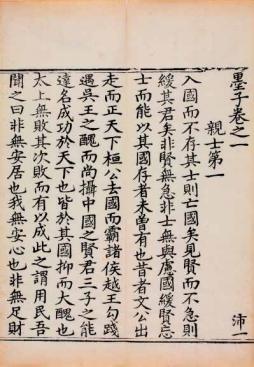 墨子卷之一
親士第一
入國而不存其士則亡國矣見賢而不急則
緩其君矣非賢無急非士無與慮國緩賢忘
士而能以其國存者未曾有也昔者文公出
走而正天下桓公去國而霸諸侯越王勾踐
遇吳王之醜而尚攝中國之賢君三子之能
達名成功於天下也皆於其國抑而大醜也
太上無敗其次敗而有以成此之謂用民吾
聞之曰非無安居也我無安心也非無足財
沛一